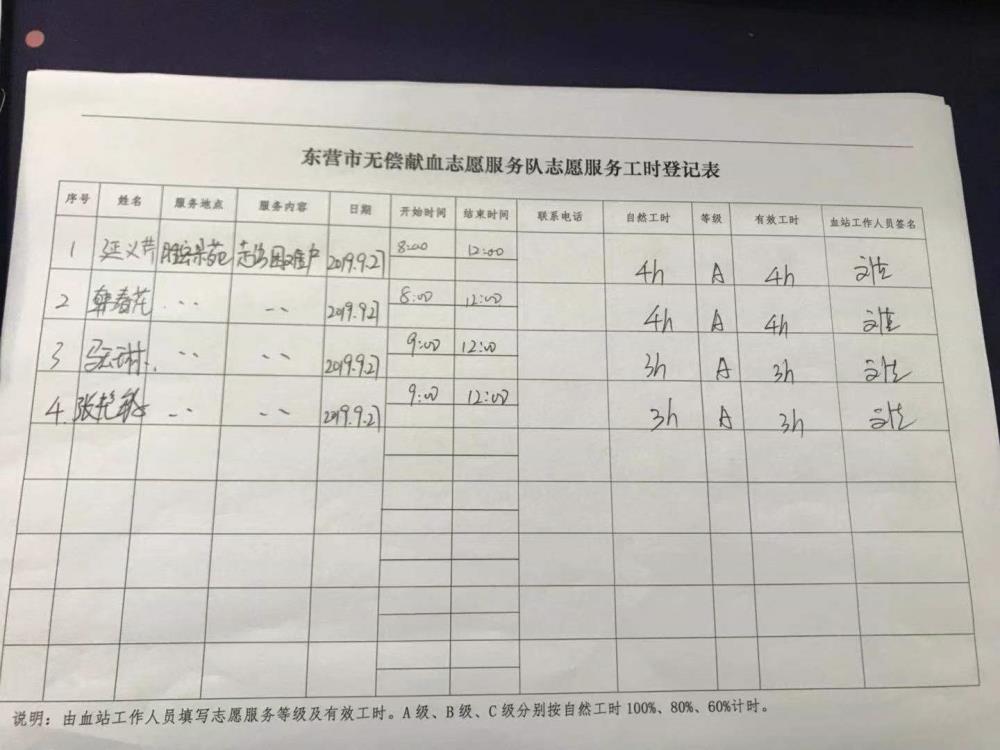 东营市无偿献血志愿服务队志愿服务工时登记表
序号 姓名 服务地点 服务内容 日期 开始时间 结束时间 联系电话 自然工时 等级 有效工时 血站工作人员签名
1 义芹 走访困难户 2019.9.27 8:00 12:00 4h A 4h
2 韩春花 〃 〃 2019.9.27 8:00 12:00 4h A 4h
3 〃 〃 2019.9.27 9:00 12:00 3h A 3h
4. 张艳敏 〃 〃 2019.9.27 9:00 12:00 3h A 3h
说明：由血站工作人员填写志愿服务等级及有效工时。A级、B级、C级分别按自然工时100%、80%、60%计时。